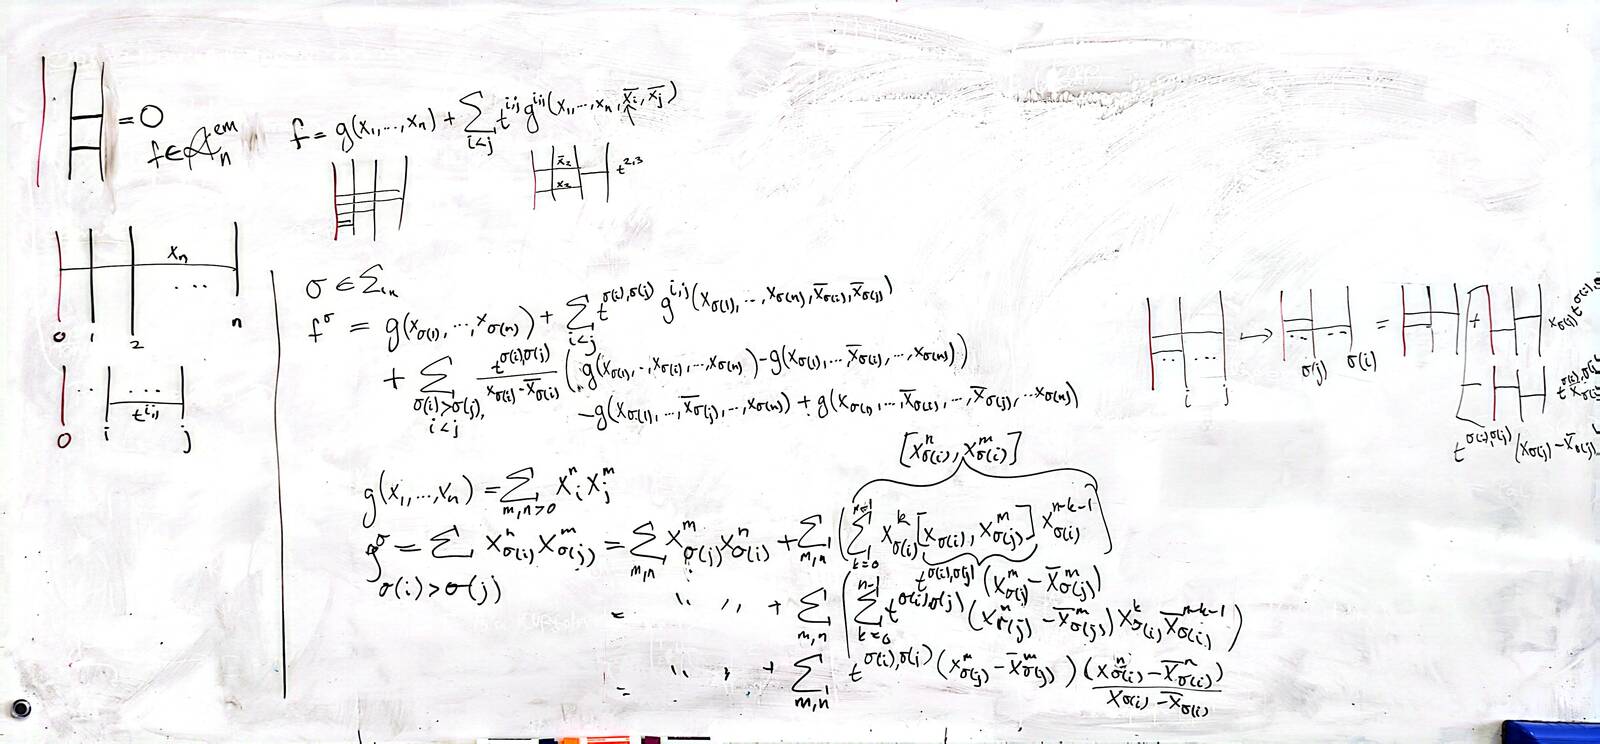 = 0
f ∈ 𝒜ₙᵉᵐ
f = g(x₁,...,xₙ) + Σ_{i<j} t^{i,j} g^{i,j}(x₁,...,xₙ, x̄ᵢ, x̄ⱼ)
x̄₂
x₂
t^{2,3}
xₙ
...
0 1 2 n
.. ...
t^{i,j}
0 i j
σ ∈ Σₙ
f^σ = g(x_{σ(1)},...,x_{σ(n)}) + Σ_{i<j} t^{σ(i),σ(j)} g^{i,j}(x_{σ(1)},...,x_{σ(n)}, x̄_{σ(i)}, x̄_{σ(j)})
+ Σ_{σ(i)>σ(j), i<j} t^{σ(i)σ(j)}/(x_{σ(i)} - x̄_{σ(i)}) (g(x_{σ(1)},..,x_{σ(i)},...,x_{σ(n)}) - g(x_{σ(1)},...,x̄_{σ(i)},...,x_{σ(n)})
- g(x_{σ(1)},...,x̄_{σ(j)},...,x_{σ(n)}) + g(x_{σ(1)},...,x̄_{σ(i)},...,x̄_{σ(j)},...x_{σ(n)})
[x^n_{σ(i)}, x^m_{σ(j)}]
g(x₁,...,xₙ) = Σ_{m,n>0} xᵢⁿ xⱼᵐ
g^σ = Σ_{σ(i)>σ(j)} x^n_{σ(i)} x^m_{σ(j)} = Σ_{m,n} x^m_{σ(j)} x^n_{σ(i)} + Σ_{m,n} (Σ_{k=0}^{n-1} x^k_{σ(i)} [x_{σ(i)}, x^m_{σ(j)}] x^{n-k-1}_{σ(i)})
t^{σ(i),σ(j)} (x^m_{σ(j)} - x̄^m_{σ(j)})
= " " + Σ_{m,n} (Σ_{k=0}^{n-1} t^{σ(i)σ(j)} (x^m_{σ(j)} - x̄^m_{σ(j)}) x^k_{σ(i)} x̄^{n-k-1}_{σ(i)})
= " " + Σ_{m,n} t^{σ(i),σ(j)} (x^m_{σ(j)} - x̄^m_{σ(j)}) (x^n_{σ(i)} - x̄^n_{σ(i)})/(x_{σ(i)} - x̄_{σ(i)})
... → .. .. = +
i j σ(j) σ(i)
-
t^{σ(i),σ(j)} (x_{σ(j)} - x̄_{σ(j)})